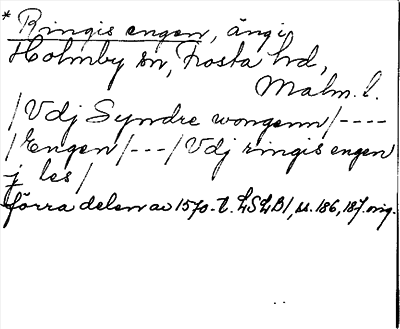 * Ringis engen, äng i
Holmby sn, Frosta hd,
Malm. l.
/Vdj Syndre wongenn/----
/Engen/---/Vdj ringis engen
j les/
förra delen av 1570-t. LSLB1, ss. 186, 187. orig.